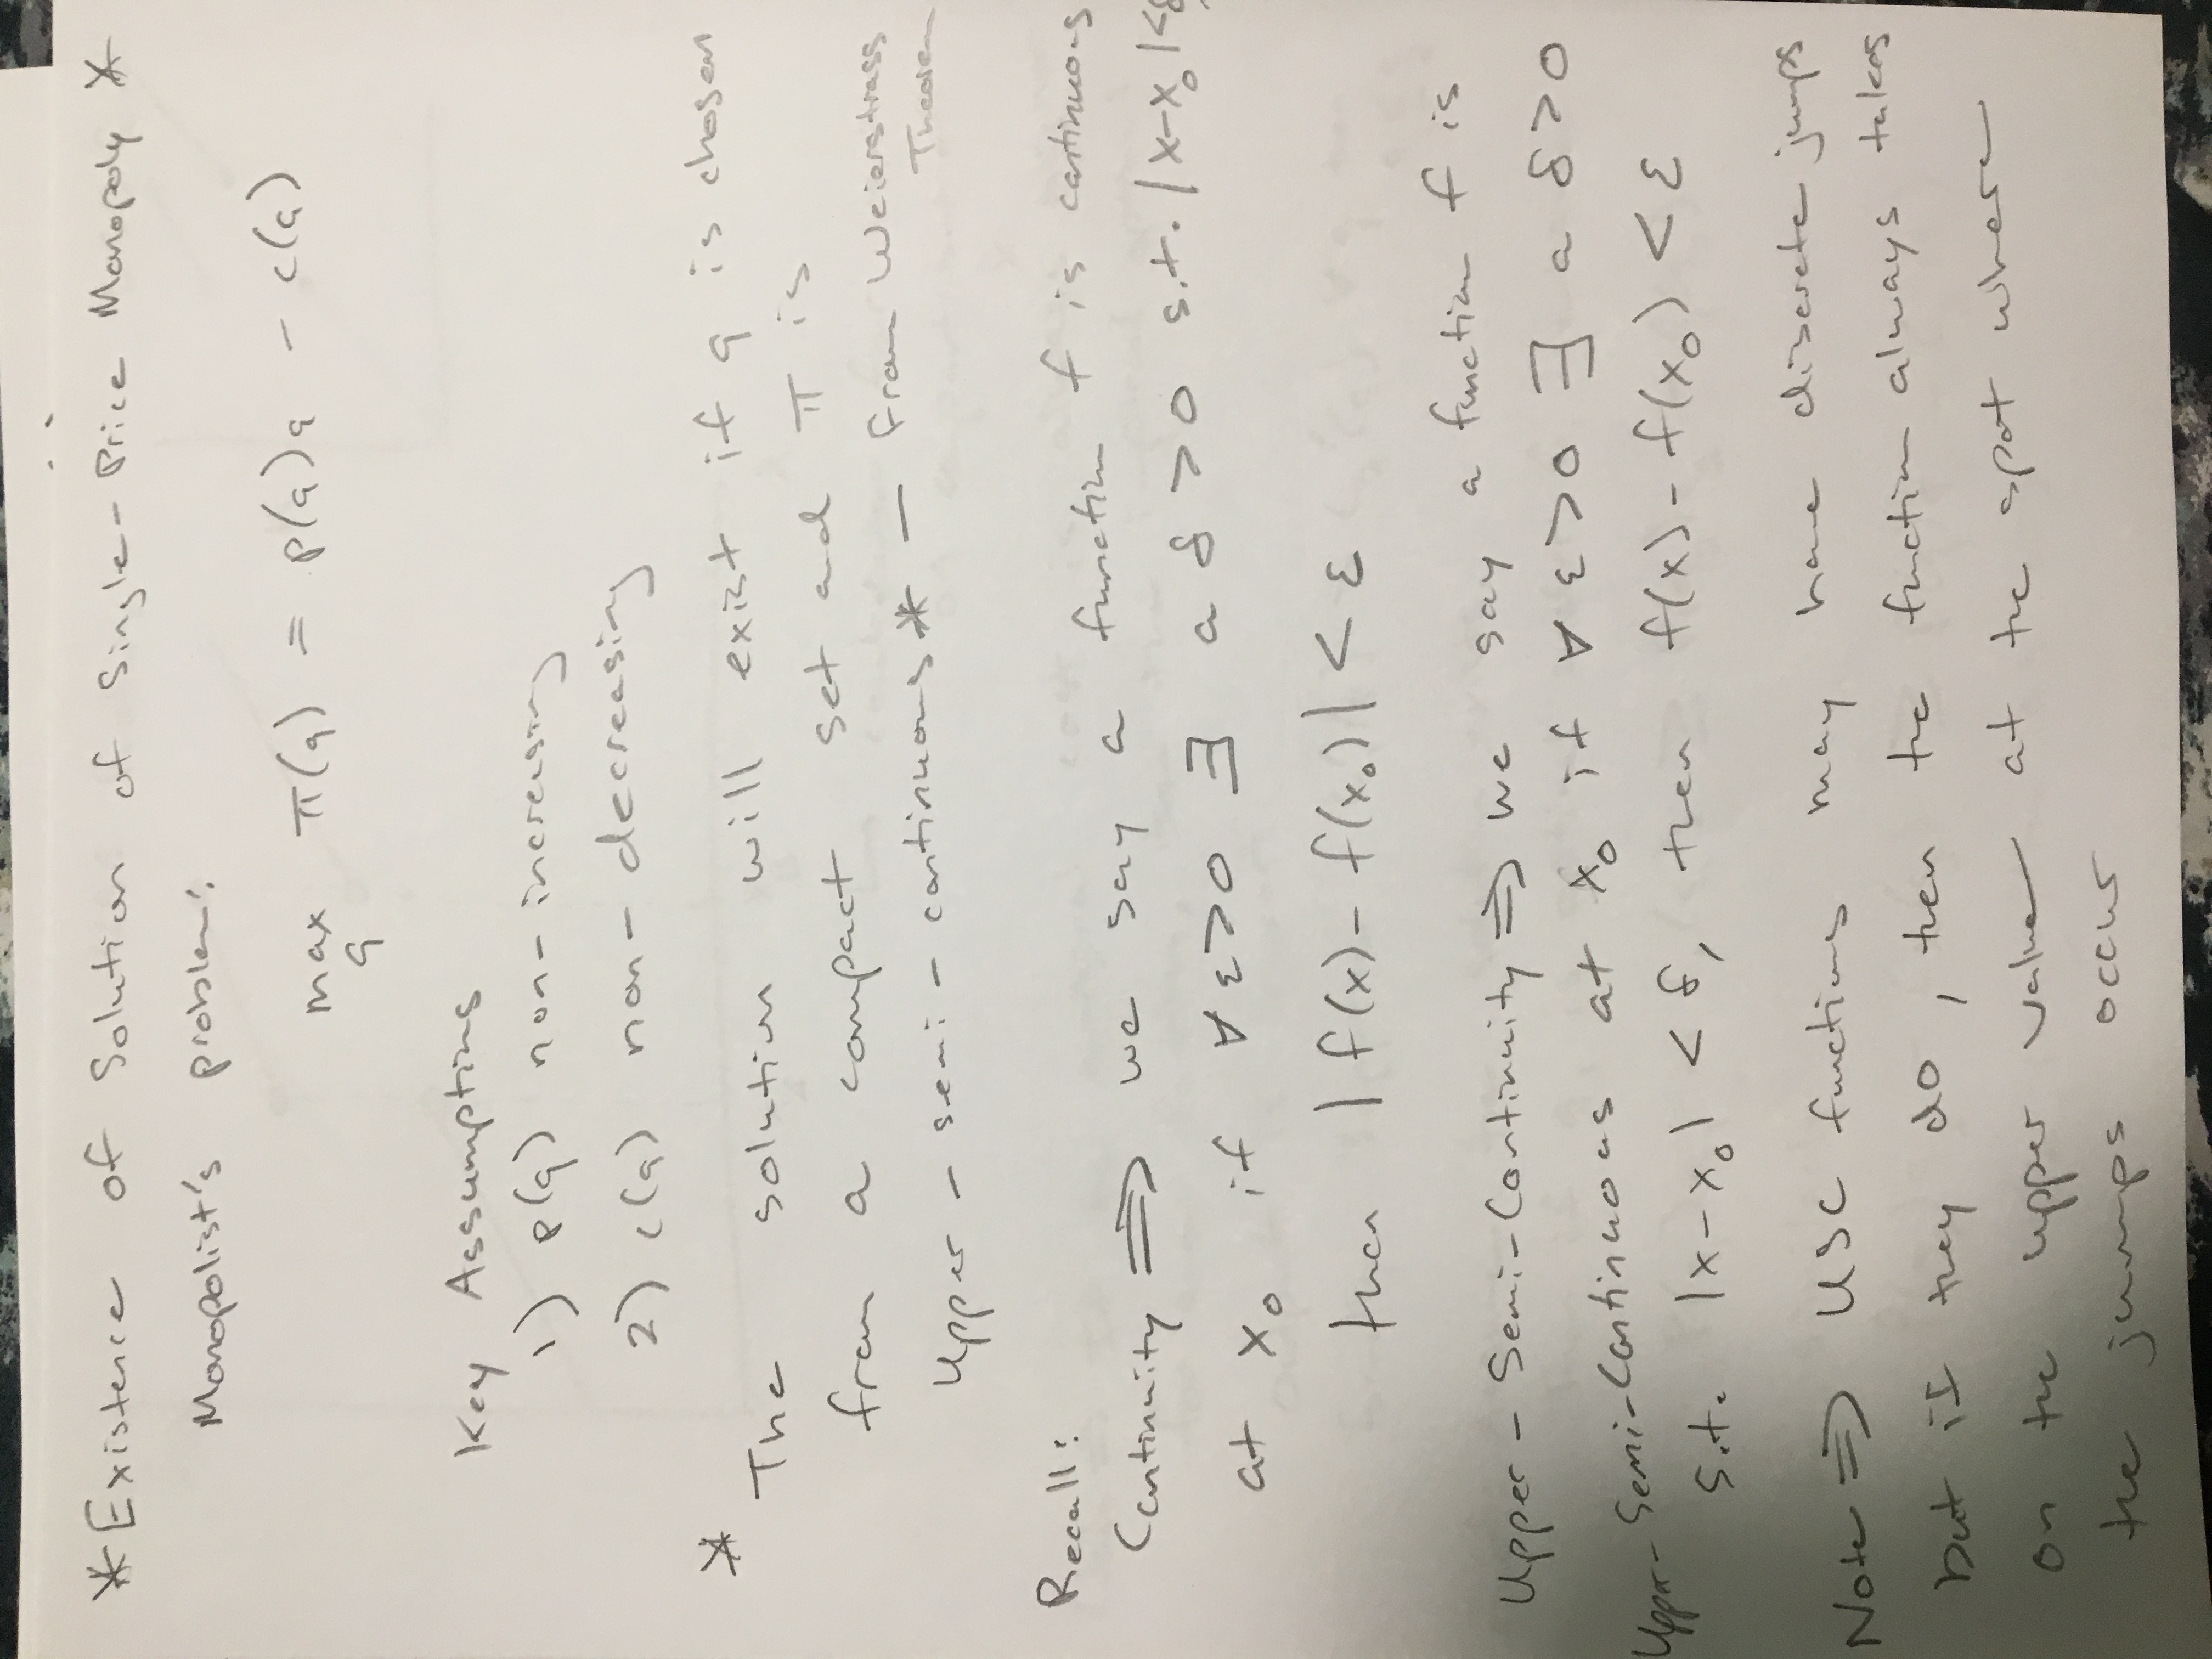 * Existence of Solution of Single-Price Monopoly *
Monopolist's problem:
max π(q) = p(q)q - c(q)
q
Key Assumptions
1) p(q) non-increasing
2) c(q) non-decreasing
*
The solution will exist if q is chosen
from a compact set and π is
upper-semi-continuous* — from Weierstrass
Theorem
Recall:
Continuity ⟹ we say a function f is continuous
at x₀ if ∀ ε>0 ∃ a δ>0 s.t. |x-x₀|<δ,
then |f(x)-f(x₀)| < ε
Upper-Semi-Continuity ⟹ we say a function f is
Upper-Semi-Continuous at x₀ if ∀ ε>0 ∃ a δ>0
s.t. |x-x₀| < δ, then f(x)-f(x₀) < ε
Note ⟹ USC functions may have discrete jumps
but if they do, then the function always takes
on the upper value at the spot where
the jumps occur